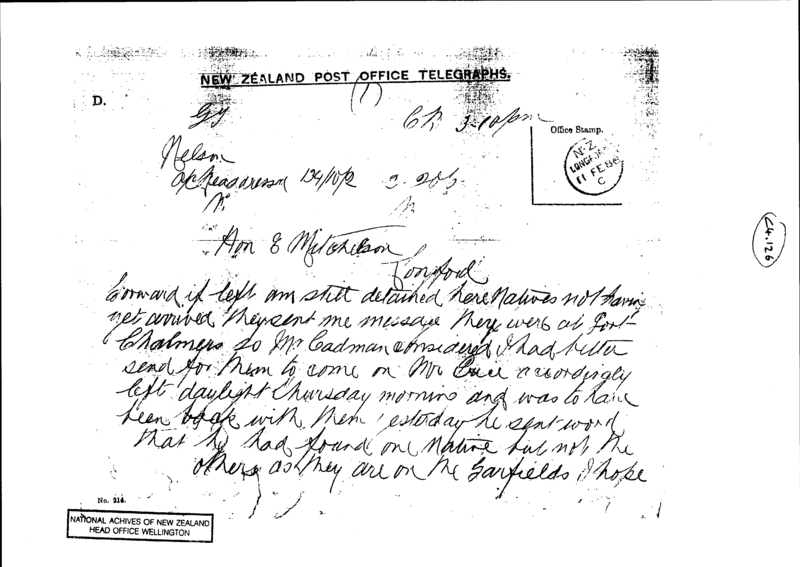 NEW ZEALAND POST OFFICE TELEGRAPHS.
(1)
D.
Office Stamp.
N.Z.
LONGFORD
11 FE 88
C
3.10 pm
Nelson
134/10/2
Hon E Mitchelson
Longford
forward if left am still detained here Natives not having
yet arrived they sent me message they were at Port
Chalmers so Mr Cadman considered I had better
send for them to come on Mr accordingly
left daylight Thursday morning and was to have
been back with them yesterday he sent word
that he had found one Native but not the
others as they are on the Garfields I hope
No. 214.
NATIONAL ACHIVES OF NEW ZEALAND
HEAD OFFICE WELLINGTON
C4.126